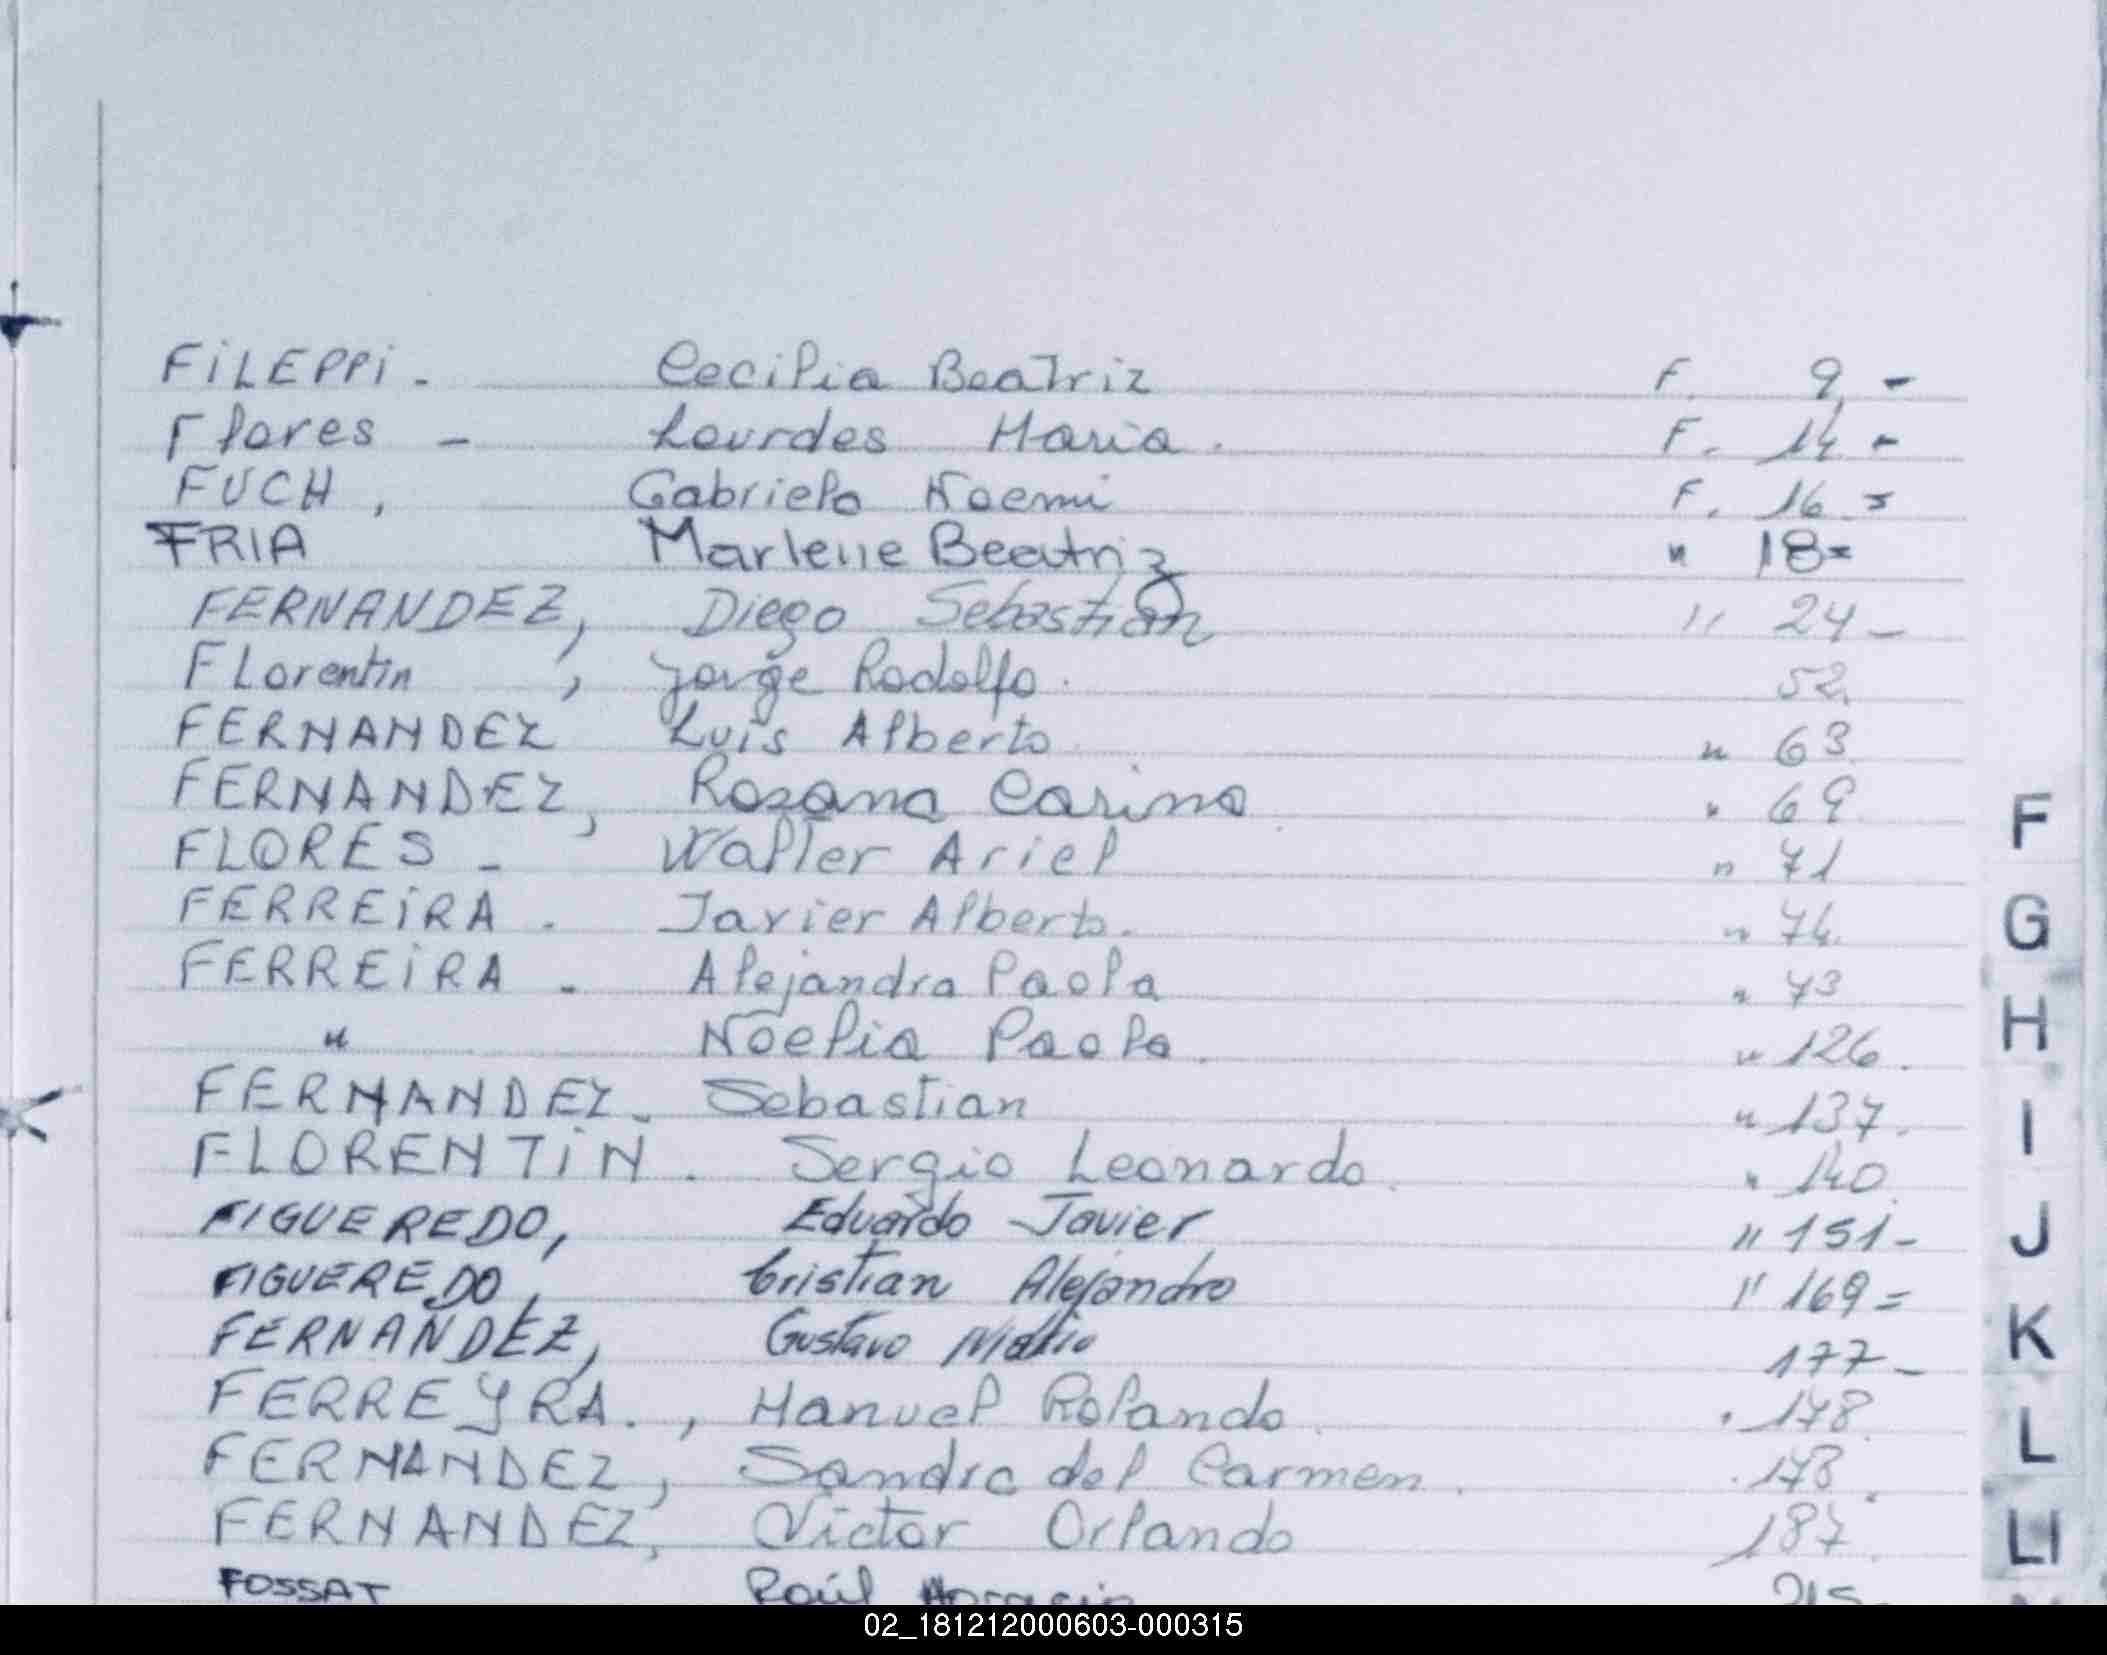 FiLEPPi. Cecilia Beatriz F. 9 -
Flores - Lourdes Maria. F. 14 -
FUCH, Gabriela Noemi F. 16 =
FRIA Marlene Beatriz " 18=
FERNANDEZ, Diego Sebastian " 24-
FLorentin, Jorge Rodolfo. 52.
FERNANDEZ Luis Alberto " 63
FERNANDEZ, Rosana Carina " 69
FLORES - Walter Ariel " 71
FERREiRA. Javier Alberto. " 74.
FERREiRA. Alejandra Paola " 73
" Noelia Paola. " 126.
FERNANDEZ. Sebastian " 137.
FLORENTiN. Sergio Leonardo. " 140.
FIGUEREDO, Eduardo Javier " 151-
FIGUEREDO, Cristian Alejandro " 169=
FERNANDEZ, Gustavo 177-
FERREYRA., Manuel Rolando. " 178.
FERNANDEZ, Sandra del Carmen. 178.
FERNANDEZ, Victor Orlando 187.
FOSSAT Raúl Horacio 215-
F
G
H
I
J
K
L
Ll
02_181212000603-000315